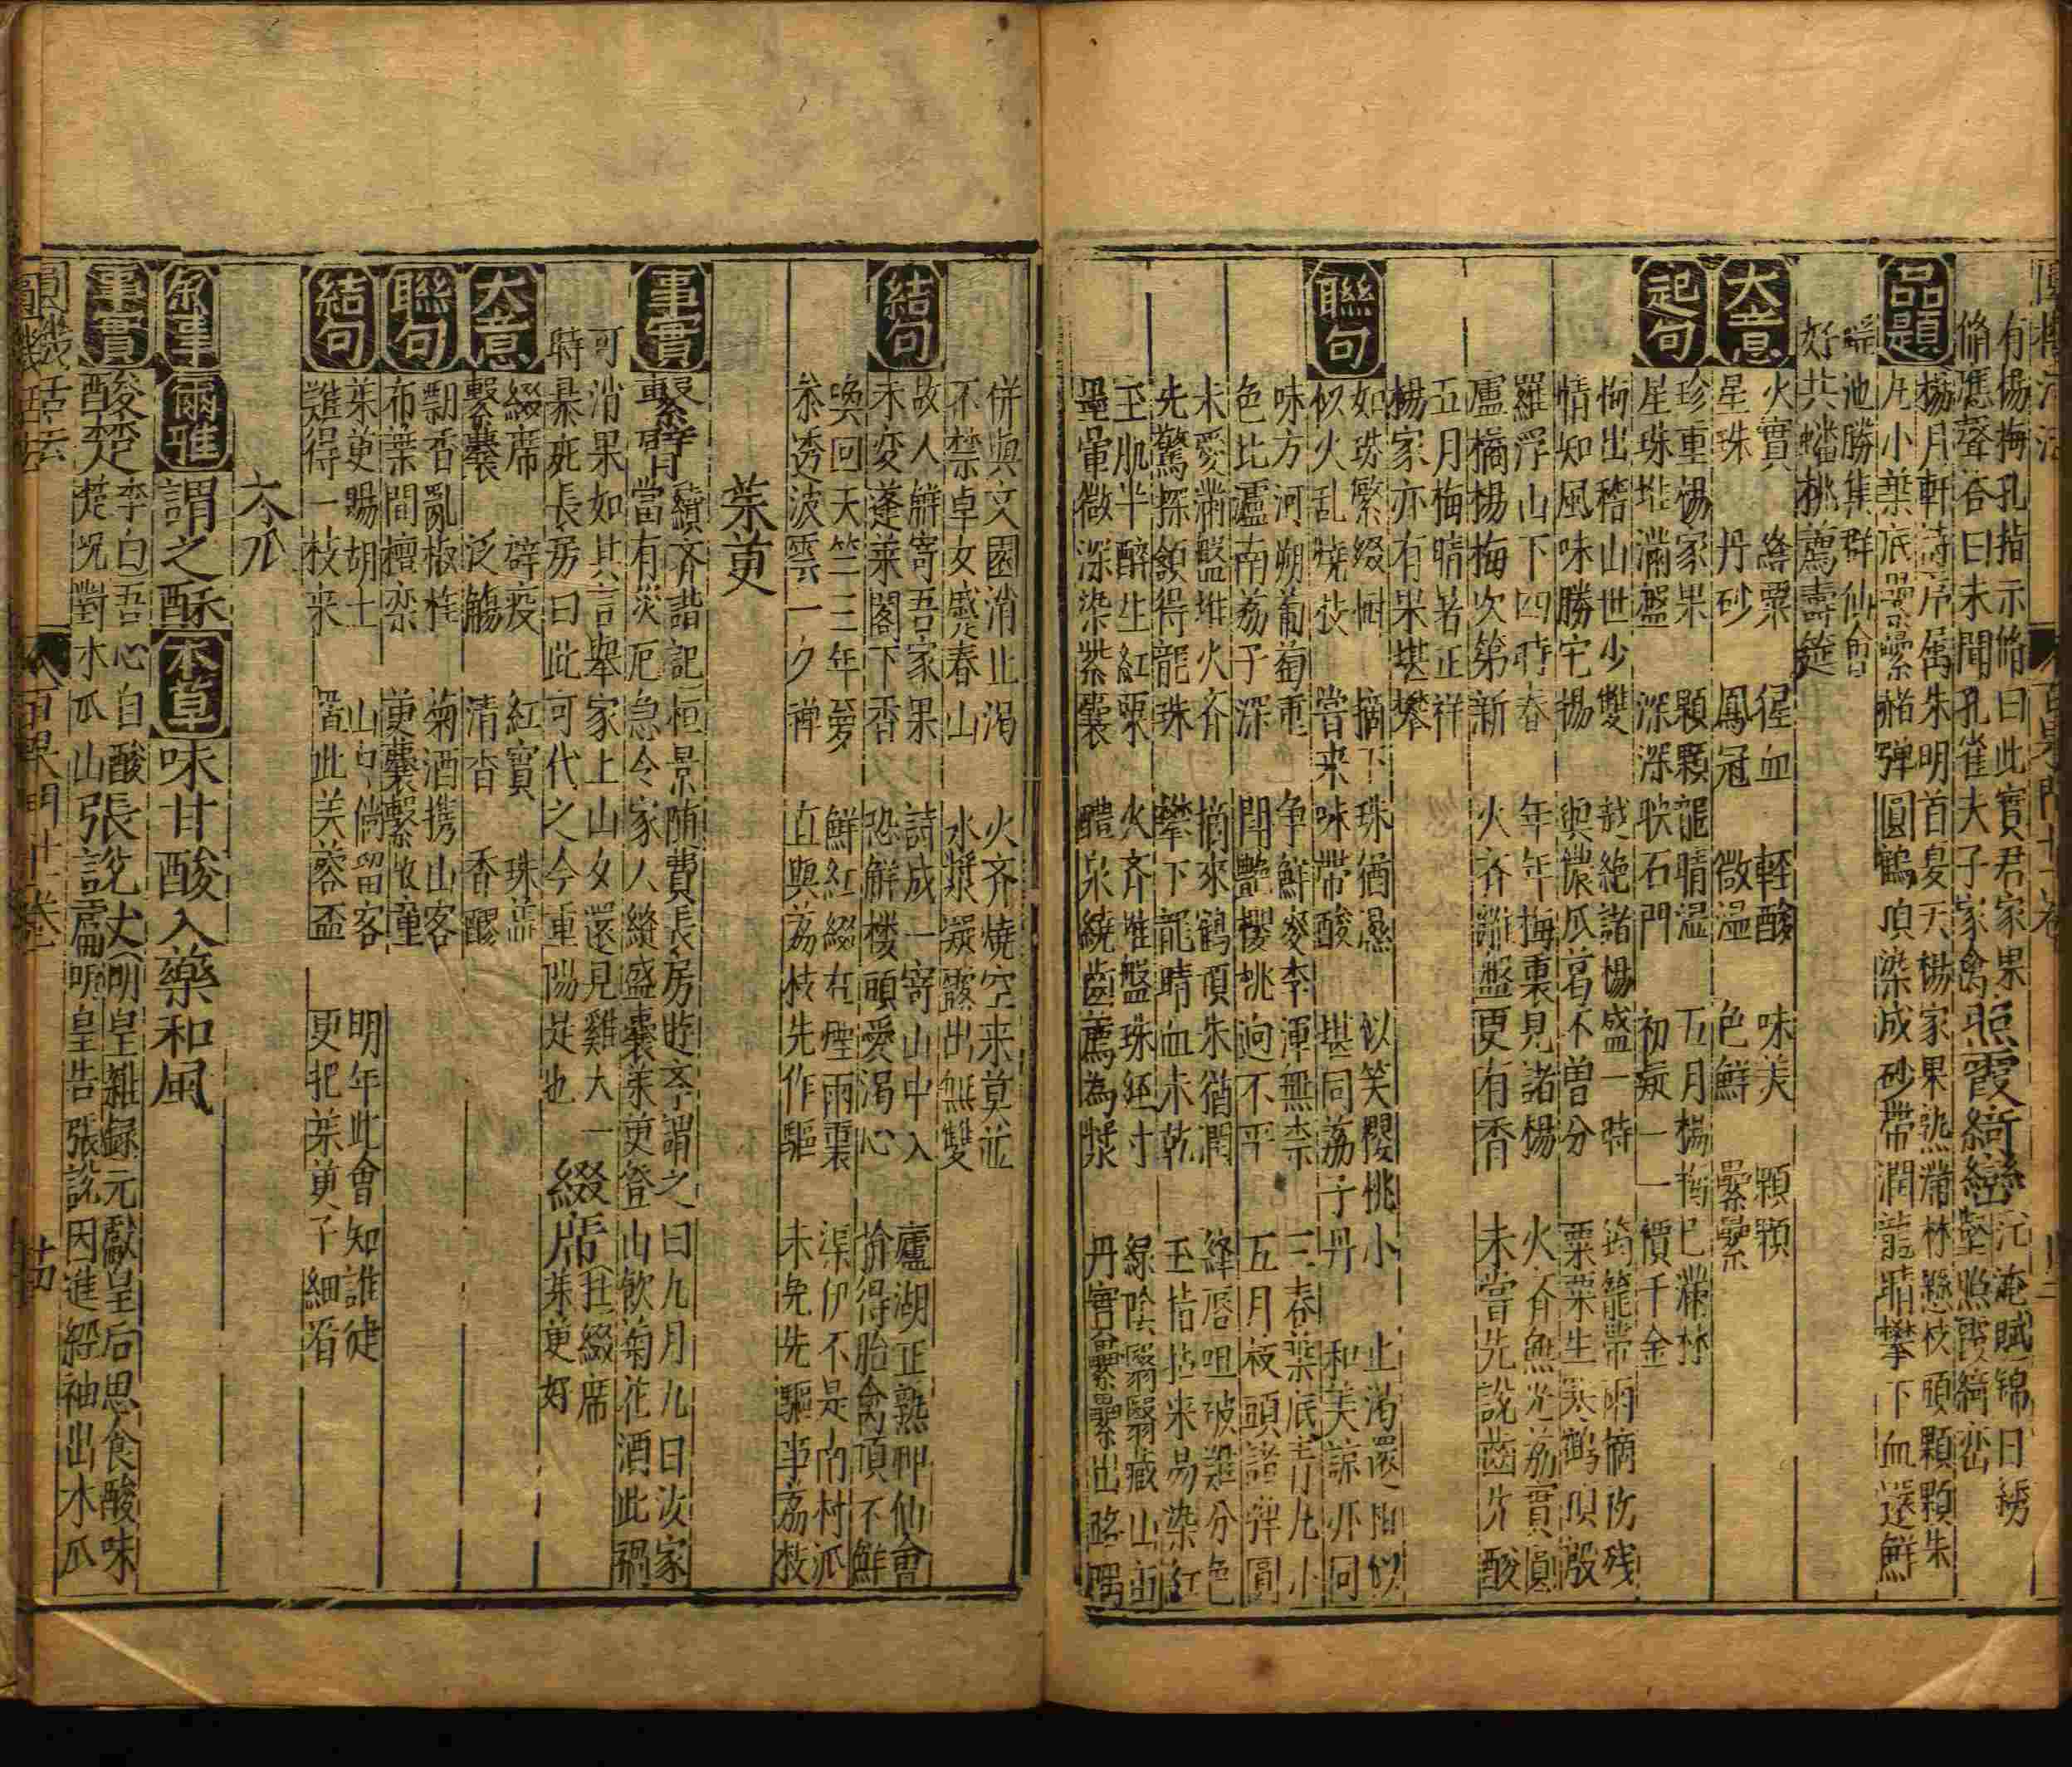 圓機活法 百果門十一卷
有楊梅孔指示脩曰此實君家果
脩應聲答曰未聞孔雀夫子家禽
照霞綺巒
淹賦錦日繡
墜照霞綺巒
品題
楊月軒詩序属朱明首夏天楊家果熟滿林懸枝頭顆顆朱
丸小葉底纍纍彈圓鶴頂染成砂帶潤龍睛攀下血還鮮
瑤池勝集群仙會
好共蟠桃薦壽筵
大意
火實 絳粟 猩血 輕酸 味美 顆顆
星珠 丹砂 鳳冠 微溫 色鮮 纍纍
起句
珍重楊家果 顆顆龍睛溫 五月楊梅已滿林
星珠堆滿盤 深深映石門 初疑一一價千金
梅出稽山世少雙 越絶諸楊盛一時 筠籠帶雨摘仍残
情知風味勝宅楊 與儂瓜葛不曽分 粟粟生寒鶴頂殷
羅浮山下四時春 年年梅裏見諸楊 火齊無光荔實圓
盧橘楊梅次第新 火齊雖盤更有香 未嘗先說齒牙酸
五月梅晴暑正祥
楊家亦有果堪攀
聯句
如珠繁綴樹 摘下珠猶濕 似笑櫻桃小 止渴還相似
似火乱燒枝 嘗来味帶酸 堪同荔子丹 和美諒亦同
味方河朔葡萄重 争鮮麥李渾無柰 三春葉底青丸小
色比瀘南荔子深 閗艶櫻桃逈不平 五月枝頭諸彈圓
未愛滿盤堆火齊 摘來鶴頂朱猶潤 絳唇咀破難分色
先驚探頷得龍珠 攀下龍睛血未乾 玉指拈来易染紅
玉肌半醉生紅粟 火齊堆盤珠經寸 綠陰翳翳藏山
墨暈微深染紫囊 醴泉繞齒薦為漿 丹實纍纍出路隅
併與文園消止渴 火齊燒空来莫並
不禁卓女感春山 水漿凝露出無雙
結句
故人觧寄吾家果 詩成一寄山中入 廬湖正熟仰仙會
未変蓬莱閣下香 恐觧楼頭愛渴心 愉得胎禽頂不鮮
喚回天竺三年夢 鮮紅綴在煙雨裏 渠伊不是南村派
叅透波雲一夕禅 直與荔枝先作驅 未免先驅事荔枝
茱萸
事實
繫臂
續齊諧記桓景随費長房遊斈謂之曰九月九日汝家
當有災厄急令家人縫盛囊茱萸登山飲菊花酒此禍
可消果如其言舉家上山夕還見雞犬一
時暴死長房曰此可代之今重陽是也
綴席
杜綴席
茱萸好
大意
綴席 辟疫 紅實 珠蕊
繫囊 泛觴 清香 香醪
聯句
飄香亂椒桂 菊酒携山客
布葉間檀欒 萸囊繫牧童
結句
茱萸賜胡士 山中倘留客 明年此會知誰健
難得一枝来 置此芙蓉盃 更把茱萸子細看
木瓜
叙事
爾雅
謂之酥
本草
味甘酸入藥和風
事實
酸楚
李白吾心自酸
楚况對木瓜山
張說
丈明皇雜録元獻皇后思食酸味
篇明皇告張說因進經袖出木瓜
圓機活法 百果門十一卷